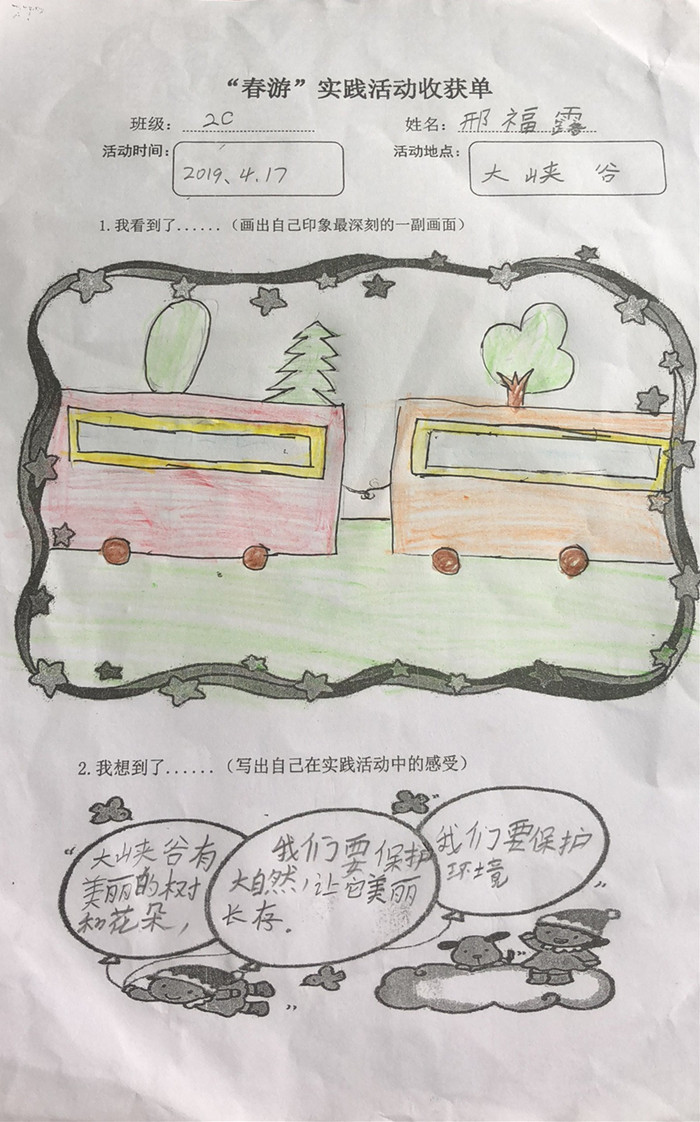 “春游”实践活动收获单
班级：2C 姓名：邢福露
活动时间：2019、4.17 活动地点：大峡谷
1.我看到了......（画出自己印象最深刻的一副画面）
2.我想到了......（写出自己在实践活动中的感受）
大峡谷有
美丽的树
和花朵，
我们要保护
大自然，让它美丽
长存.
我们要保护
环境